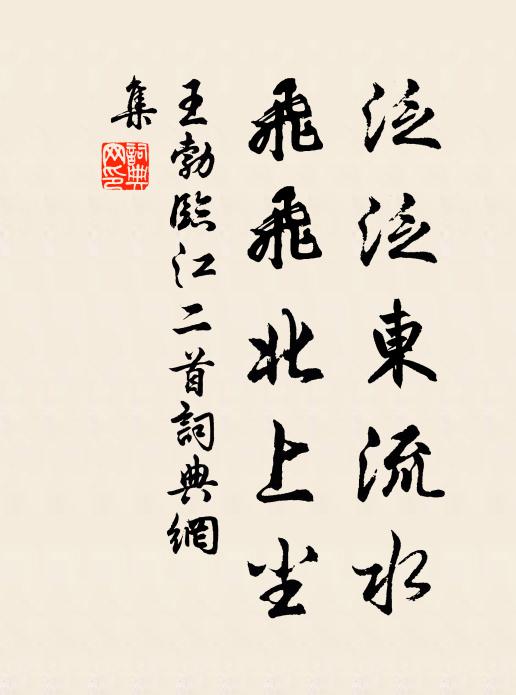 泛泛東流水
飛飛北上尘
王勃臨江二首詞典網
集
詞典
网印